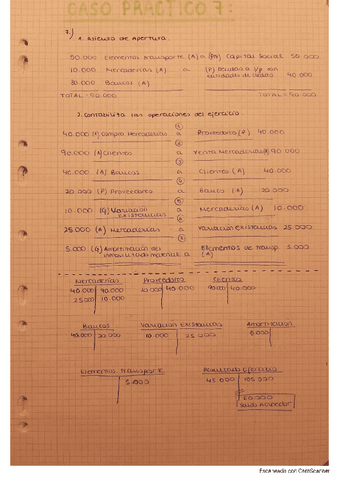 CASO PRÁCTICO 7:
7.)
1. Asiento de Apertura.
50.000 Elementos transporte (A) a (PN) Capital Social 50.000
10.000 Mercaderías (A) a (P) Deudas a l/p con entidades de crédito 40.000
30.000 Banco (A)
TOTAL = 90.000 TOTAL = 90.000
2. Contabilita las operaciones del ejercicio.
40.000 (G) Compra Mercaderías a Proveedores (P) 40.000
90.000 (A) Clientes a Venta Mercaderías 90.000
40.000 (A) Bancos a Clientes (A) 40.000
20.000 (P) Proveedores a Banco (A) 20.000
10.000 (G) Variación Existencias a Mercaderías (A) 10.000
25.000 (A) Mercaderías a Variación Existencias 25.000
5.000 (G) Amortización del inmovilizado material a Elementos de Transp. (A) 5.000
Mercaderías Proveedores Clientes
40.000 40.000 90.000 40.000
25.000 10.000
Bancos Variación Existencias Amortización
40.000 20.000 10.000 25.000
Elementos Transporte Resultado Ejercicio
5.000 45.000 105.000
60.000
Saldo Acreedor
Escaneado con CamScanner